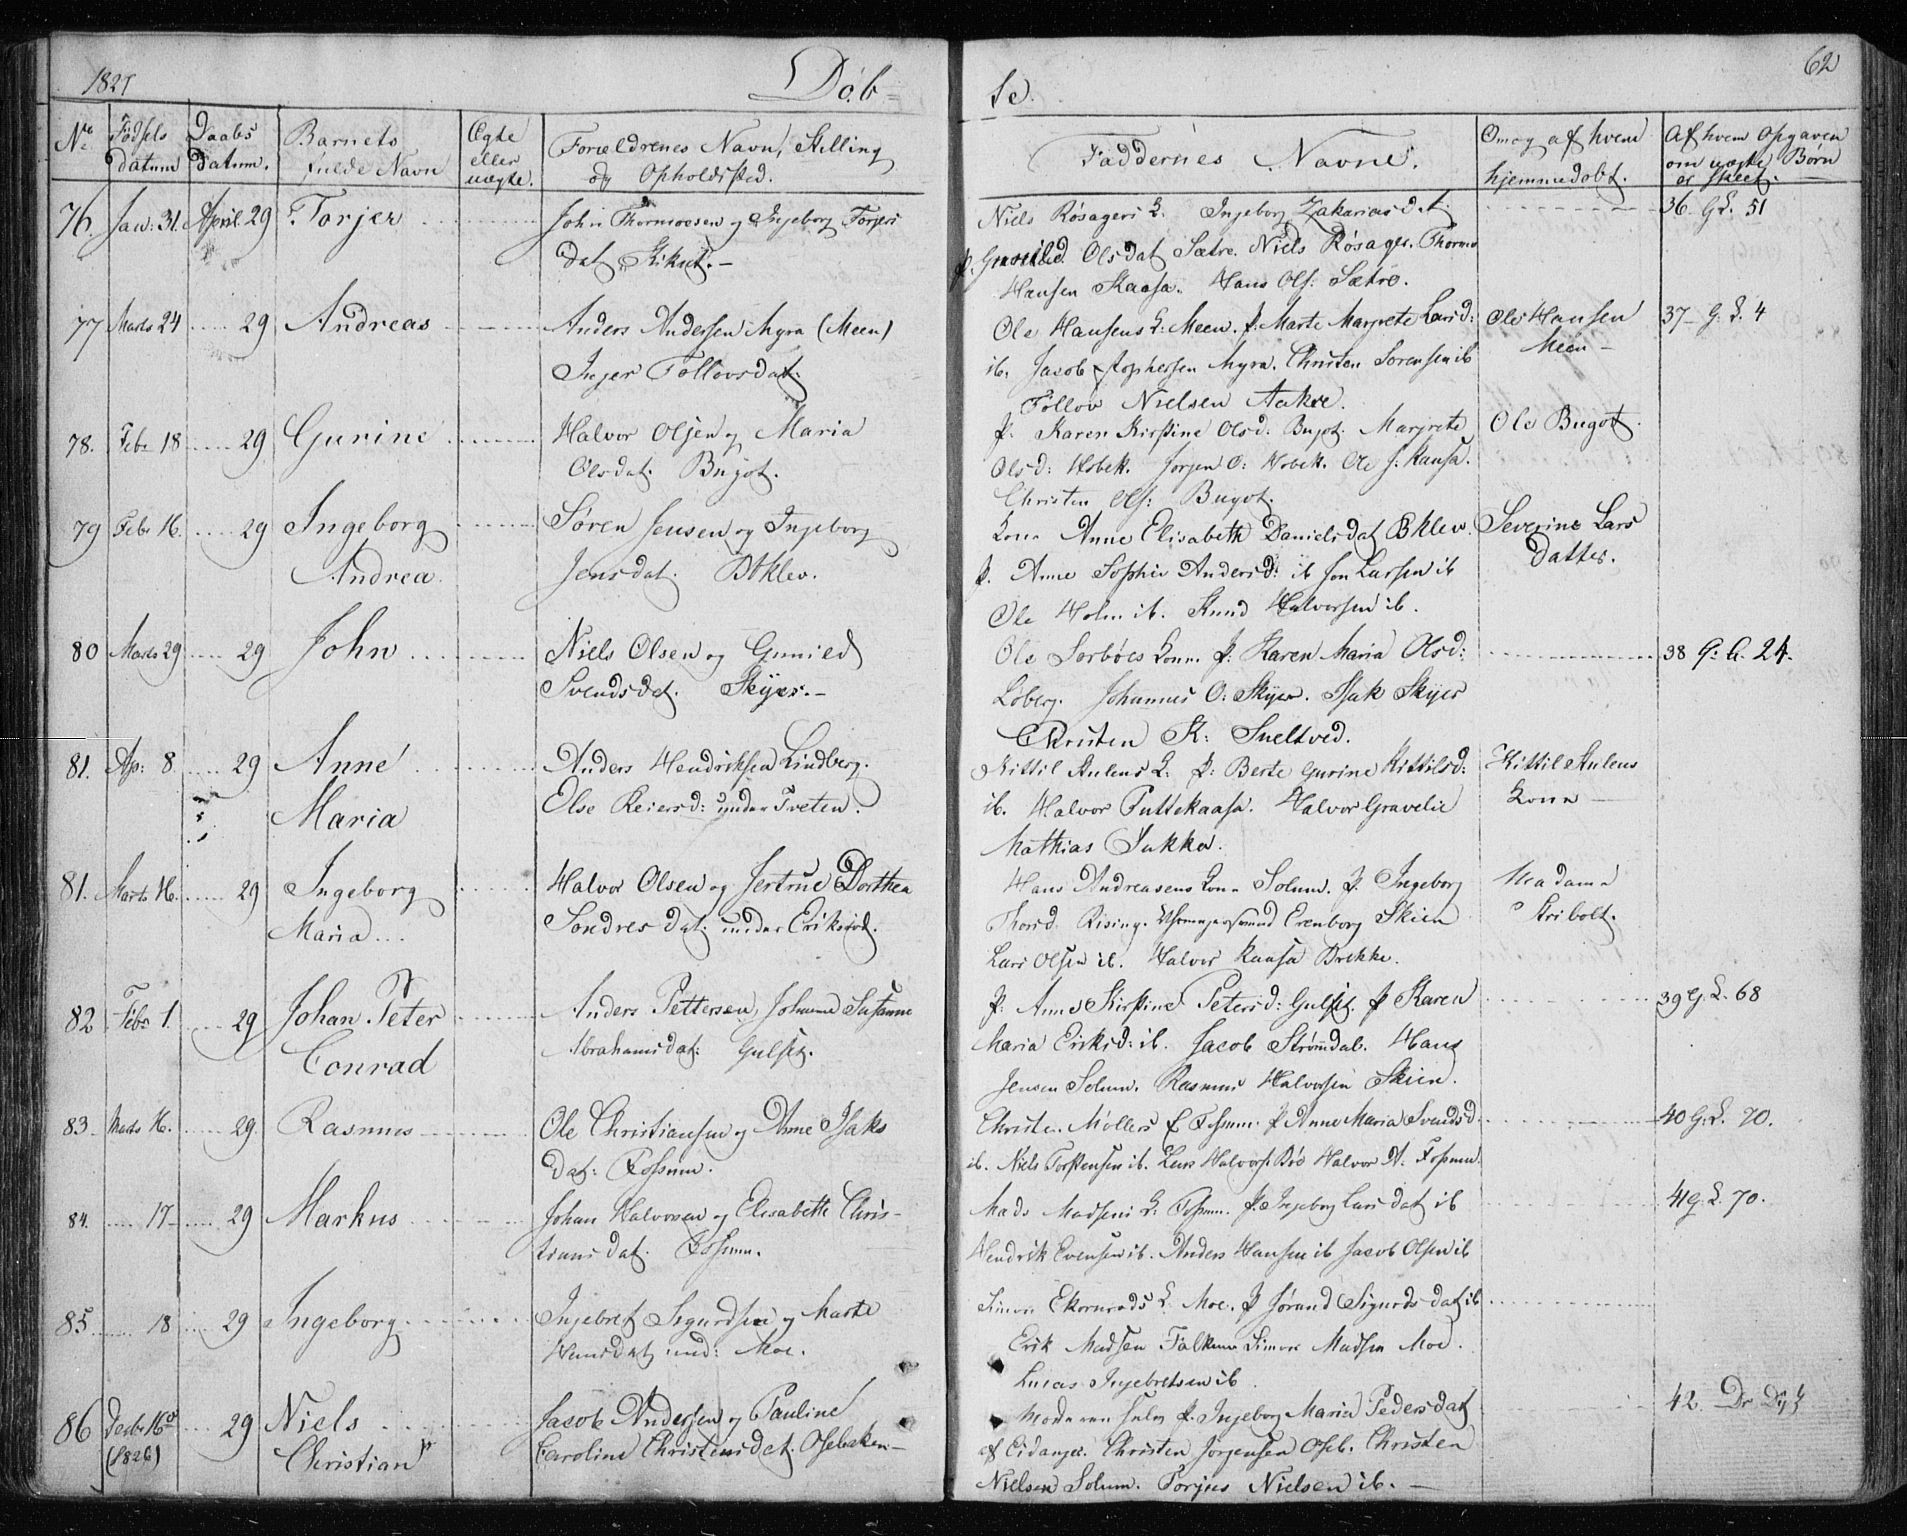 1827 Døb-
No Fødsels datum Daabs datum. Barnets fulde Navn Ægte eller uægte. Forældrenes Navn, Stilling og Opholdssted.
76. Jan: 31. April 29 Torjer John Thormoesen og Ingeborg Torjers
dat.
77 Marts 24 29 Andreas Anders Andersen Myra (Meen)
Inger Follovsdat:
78. Febr 18 29 Gurine Halvor Olsen og Maria
Olsdat. Bugot.
79 Febr 16. 29 Ingeborg Søren Jensen og Ingeborg
Andrea. Jensdat. Bøklev.
80 Marts 29 29 John Niels Olsen og Gunild
Svendsdat. Skyer.-
81. Ap: 8 29 Anne Anders Hendriksen Lindberg.
Maria Else Reiersd: under Tveten.
81. Marts 16. 29 Ingeborg Halvor Olsen og Jertrue Dorthea
Maria Sondresdat. under Eriksrød.
82 Febr 1. 29 Johan Peter Anders Pettersen, Johanne Susanne
Conrad Abrahamsdat: Gulset.
83. Marts 16. 29 Rasmus Ole Christiansen og Anne Isaks
dat: Fossum.
84. 17 29 Markus Johan Halvorsen og Elisabeth Chris-
tiansdat. Fossum.
85 18 29 Ingeborg Ingebret Sigurdsen og Marte
Hansdat und: Moe.
86 Decbr 16d 29 Niels Jacob Andersen og Pauline
(1826) Christian Caroline Christensdat. Osebaken-
te. 62
Faddernes Navne. Om og af hvem hjemmedøbt. Af hvem Opgaven om uægte Børn er skeet.
Niels Røsagers K. Ingeborg Zakariasdat. 36. G.L. 51
P. Gunild Olsdat Sætre. Niels Røsager. Thormo
Hansen Kaasa. Hans Ols: Sætre.
Ole Hansens K: Meen. P: Marte Margrete Larsd: Ole Hansen 37- G.L. 4
ib. Jacob Myra. Christen Sorensen ib Meen-
Follov Nielsen Aakre.
P. Karen Kirstine Olsd: Bugot. Margrete Ole Bugot.
Olsd: Hobek. Jorgen O: Hobek. Ole J: Kaasa.
Christen Ols: Bugot.
Kone Anne Elisabeth Danielsdat Bklev. Severine Lars
P. Anne Sophie Andersd: ib Jon Larsen ib Datter.
Ole Holm ib. Knud Halvorsen ib.
Ole Sorbøes Kone. P: Karen Maria Olsd: 38 G: L. 24.
Loberg. Johannes O: Skyer. Isak Skyer
Christen K: Sneltved.
Kittil Aulens K. P: Berte Gurine Kittilsd: Kittil Aulens
ib. Halvor Puttekaasa. Halvor Gravelie Kone-
Mathias Bakka.
Hans Andreasens Kone Solum. P. Ingeborg Madame
Thorsd. Rising. Erenborg Skien Stribolt.
Lars Olsen ib. Halvor Kaasa Brekke.
P: Anne Kirstine Petersd: Gulset. P Karen 39 G.L. 68
Maria Eriksd: ib. Jacob Strømdal. Hans
Jensen Solum. Rasmus Halvorsen Skien.
Christen Møllers K Fossum. P Anne Maria Svendsd: 40 G.L. 70.
ib. Niels Torstensen ib. Lars Halvors: Bøe Halvor A: Fossum.
Mads Madsens K: Fossum. P. Ingeborg Larsdat ib 41 G.L. 70.
Hendrik Evensen ib. Anders Hansen ib Jacob Olsen ib
Simon Ekornrøds K. Moe. P Jørand Sigurdsdat ib
Erik Madsen Falkum Simon Madsen Moe.
Lucas Ingebretsen ib.
Moderen selv P. Ingeborg Maria Pedersdat 42.
af Eidanger. Christen Jørgensen Oseb. Christen
Nielsen Solum. Torjus Nielsen ib.-